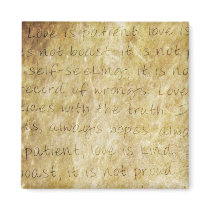 Love is patient, love is
is not boast, it is not
self-seeking, it is no
record of wrongs. Love
ices with the truth.
is, always hopes, alwa
patient, love is kind.
oast, it is not proud.